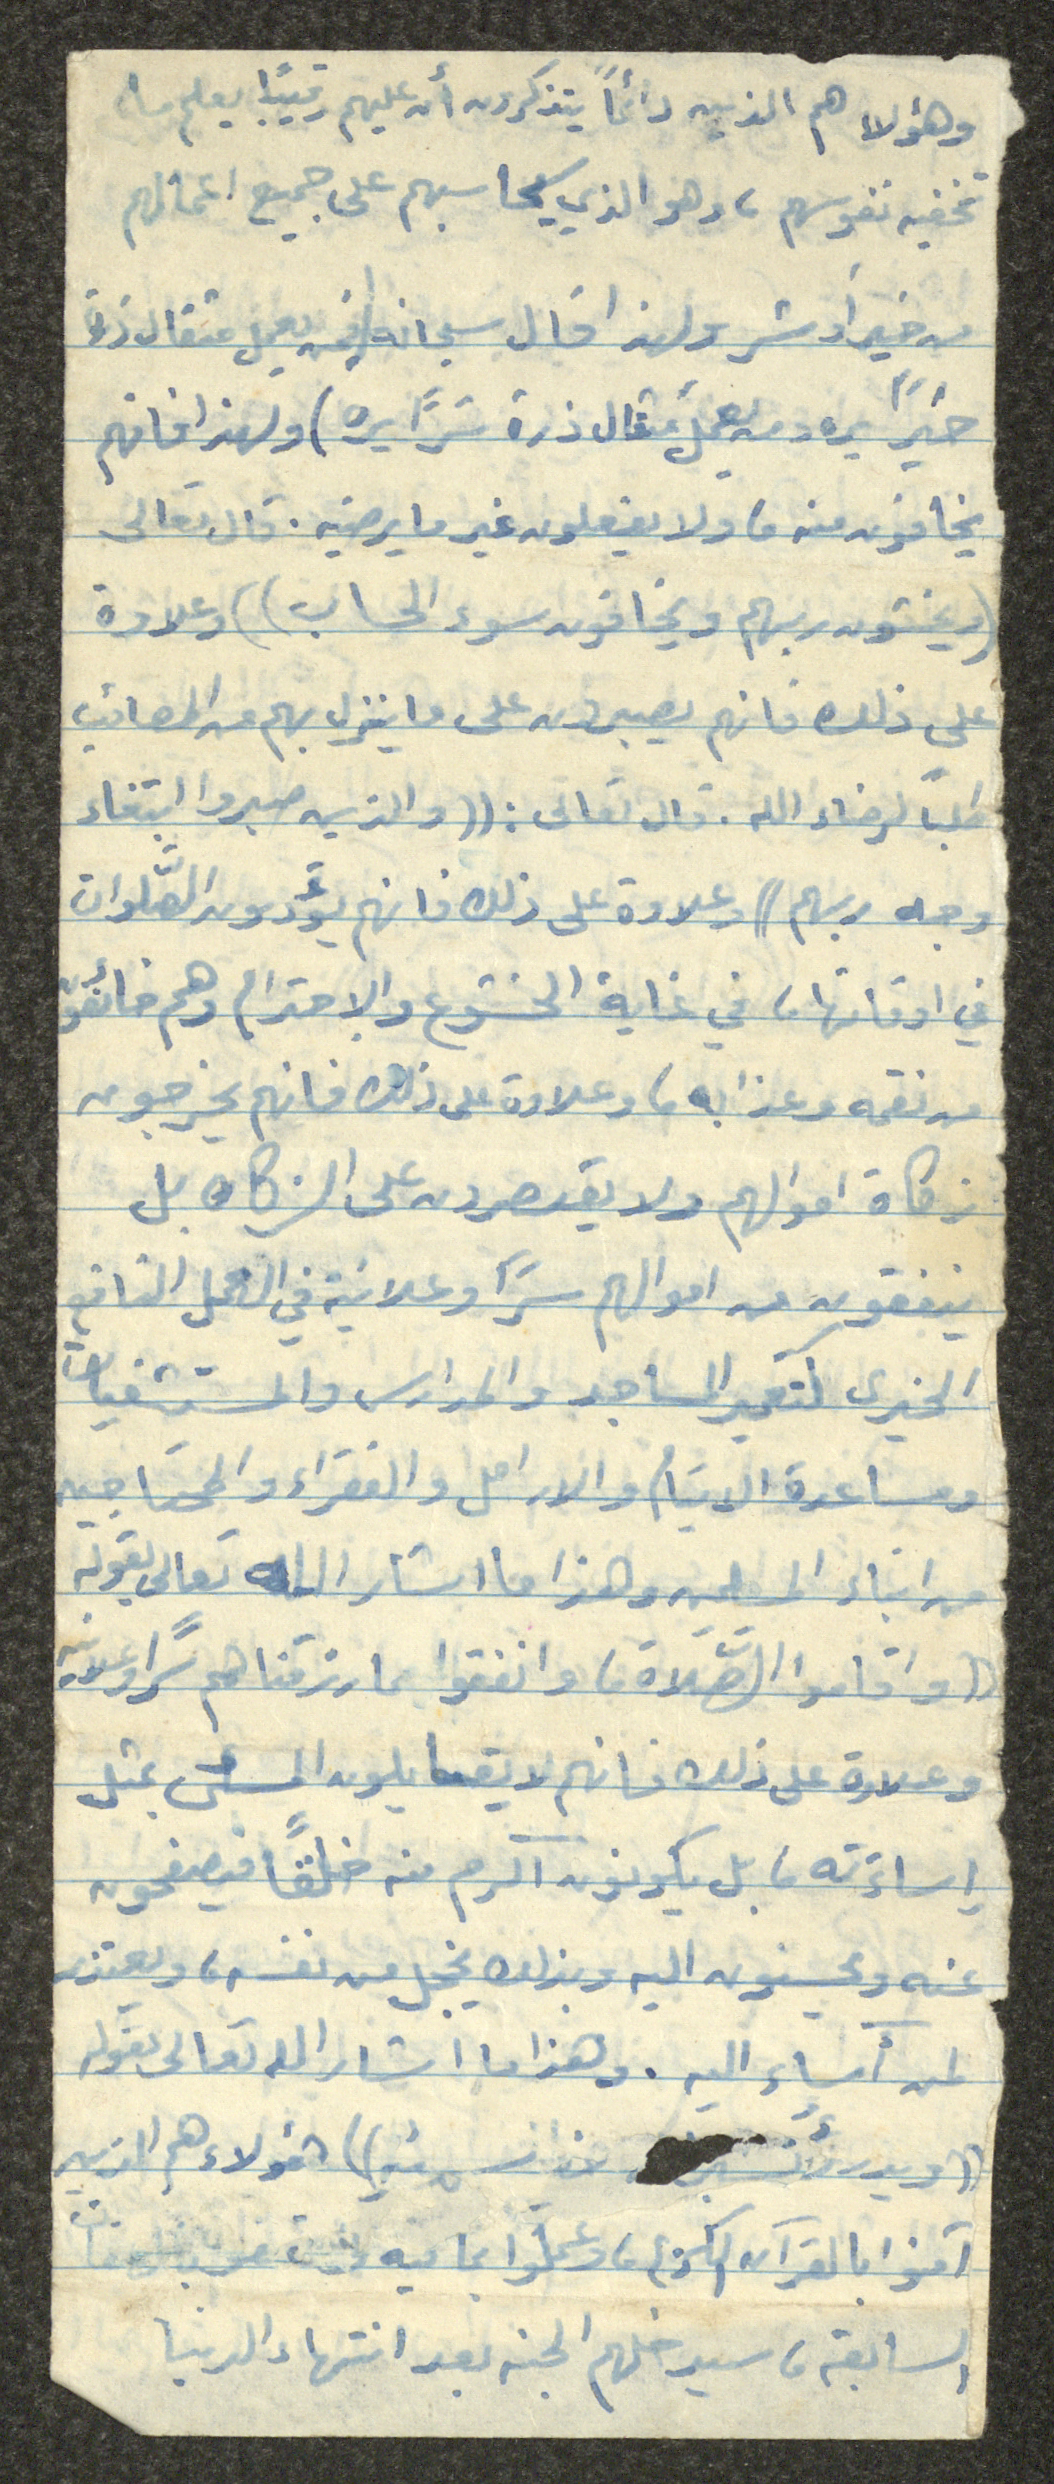 وهؤلا هم الذين دائماً يتذكرون أن عليهم رقيبًا يعلم ما
تخفيه نفوسهم، وهو الذي سيحاسبهم على جميع اعمالهم
من خير أو شر ولهذا قال سبحانه (فمن يعمل مثقال ذرة
خيرًا يره ومن يعمل مثقال ذرة شرًا يره) ولهذا فانهم
يخافون منه، ولا يفعلون غير ما يرضيه. قال تعالى
(ويخشون ربهم ويخافون سوء الحساب)) وعلاوة
على ذلك فانهم يصبرون على ما ينزل بهم من المصائب
طلبًا لرضاء الله. قال تعالى: ((والذين صبروا ابتغاء
وجه ربهم)) وعلاوة على ذلك فانهم يؤدون الصَّلوات
في اوقاتها، في غاية الخشوع والاحترام وهم خائفون
من نقمه وعذابه، وعلاوة على ذلك فانهم يخرجون
زكاة اموالهم ولا يقتصرون على الزكاه بل
ينفقون من اموالهم سرًا وعلانية في العمل النافع
الخيرى كتعمير المساجد والمدارس والمستشفيات
ومساعدة الايتام والارامل والفقراء والمحتاجين
من ابناء المسلمين وهذا ما اشار الله تعالى بقوله
((واقاموا الصَّلاة، وانفقوا مما رزقناهم سرًا وعلانية
وعلاوة على ذلك فانهم لا يقابلون المسئ بمثل
إساءته، بل يكونون آكرم منه خلقًا فيصفحون
عنه ويحسنون اليه وبذلك يخجل من نفسه، ويعتذر
لمن آساء اليه. وهذا ما اشار الله تعالى بقوله
((ويدرؤن هؤلاء هم الذين
آمنوا بالقرآن الكريم، وعملوا بما فيه
السابقة، سيدخلهم الجنه بعد انتهاء الدنيا